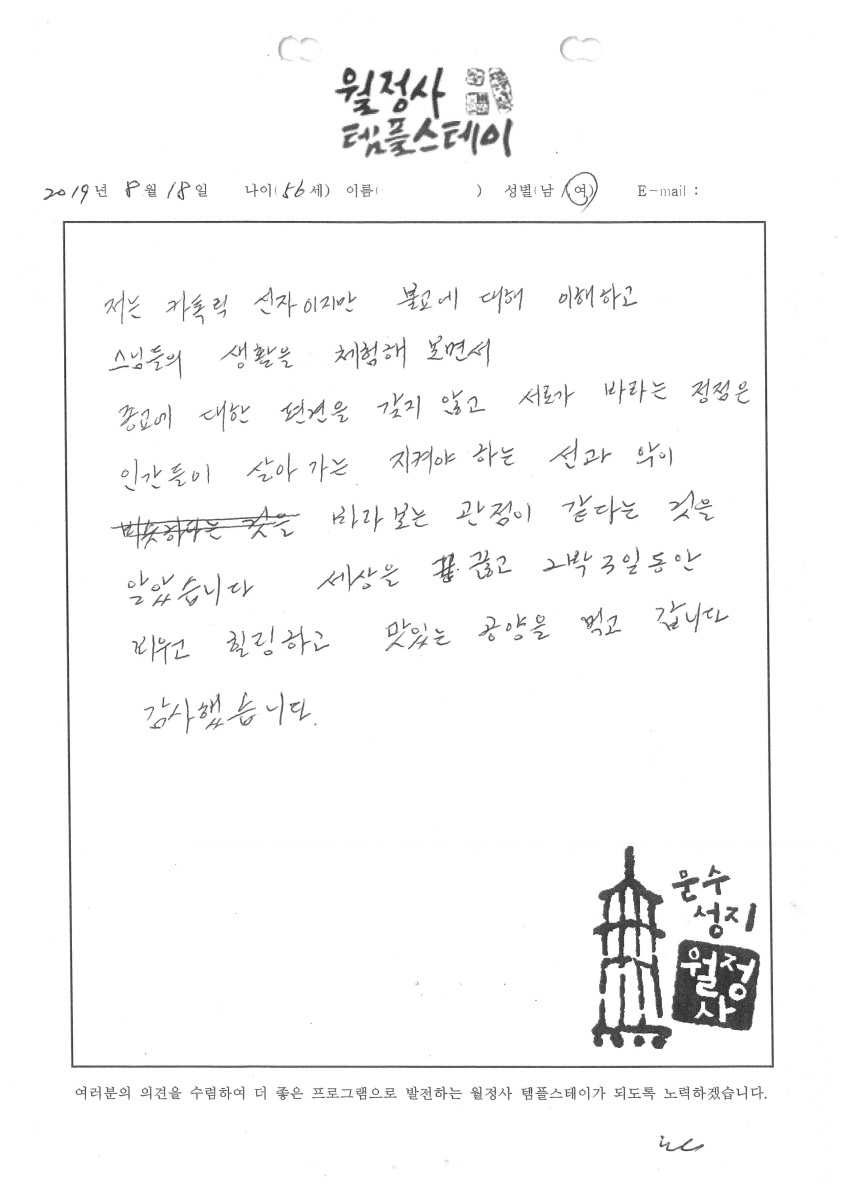 월정사
템플스테이
2019년 8월 18일 나이(56세) 이름( ) 성별(남/여) E-mail :
저는 카톡릭 신자이지만 불교에 대해 이해하고
스님들의 생활을 체험해 보면서
종교에 대한 편견을 갖지 않고 서로가 바라는 정점은
인간들이 살아 가는 지켜야 하는 선과 악이
비슷하다는 것을 바라보는 관점이 같다는 것을
알았습니다 세상을 끊고 2박 3일동안
비워고 힐링하고 맛있는 공양을 먹고 갑니다
감사했습니다.
문수
성지
월정
사
여러분의 의견을 수렴하여 더 좋은 프로그램으로 발전하는 월정사 템플스테이가 되도록 노력하겠습니다.